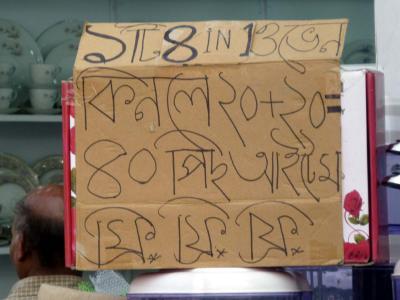 ১টি 4 IN 1 ওভেন
কিনলে ২০+২০=
৪০ পিং আইটেম
ফ্রি. ফ্রি. ফ্রি.